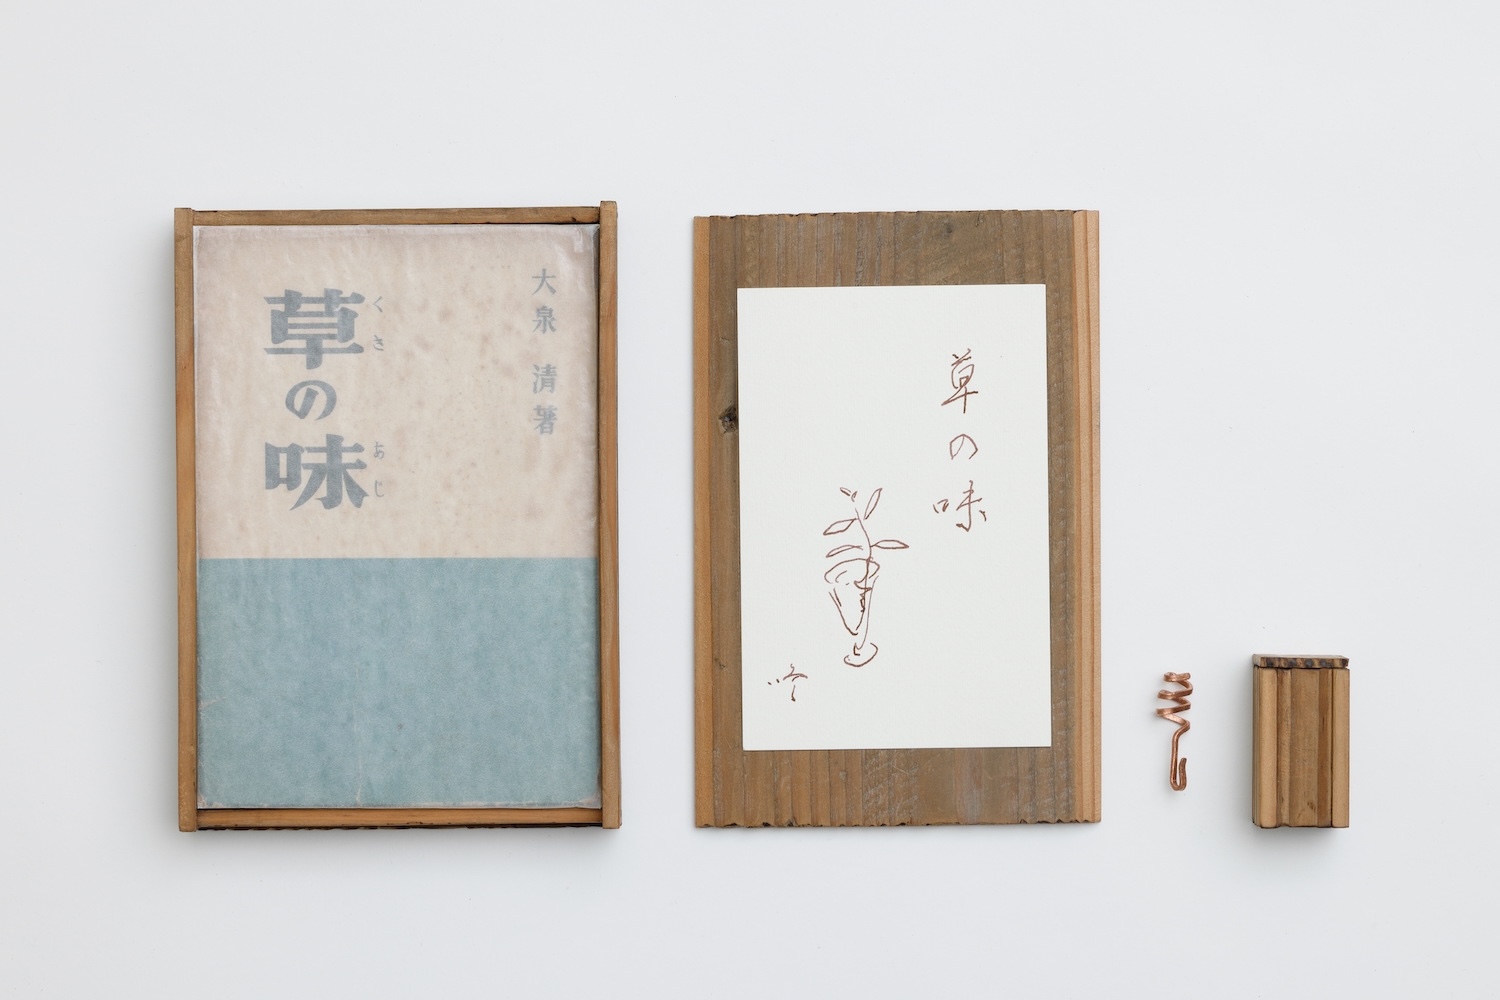 大泉 清著
草の味
くさ
あじ
草の味